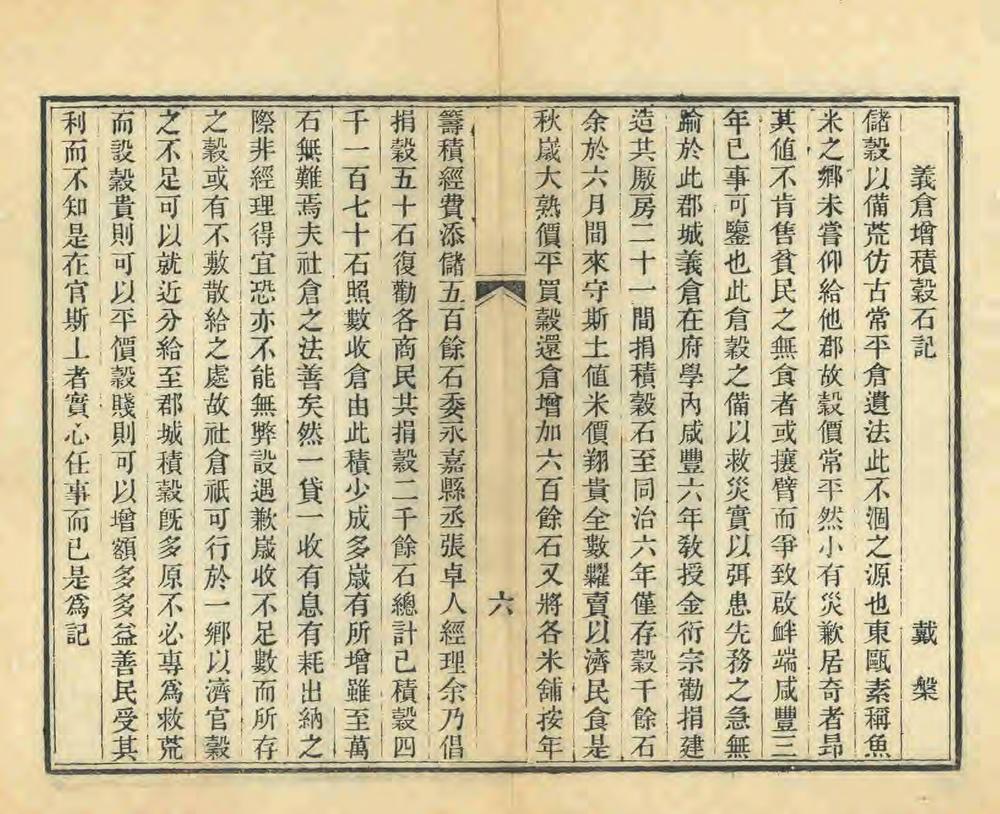 義倉增積穀石記 戴槃
儲穀以備荒仿古常平倉遺法此不涸之源也東甌素稱魚
米之鄉未嘗仰給他郡故穀價常平然小有災歉居奇者昻
其値不肯售貧民之無食者或攘臂而爭致啟衅端咸豐三
年已事可鑒也此倉穀之備以救災實以弭患先務之急無
踰於此郡城義倉在府學內咸豐六年教授金衍宗勸捐建
造共厫房二十一間捐積穀石至同治六年僅存穀千餘石
余於六月間來守斯土値米價翔貴全數糶賣以濟民食是
秋歲大熟價平買穀還倉增加六百餘石又將各米舖按年
六
籌積經費添儲五百餘石委永嘉縣丞張卓人經理余乃倡
捐穀五十石復勸各商民共捐穀二千餘石總計已積穀四
千一百七十石照數收倉由此積少成多歲有所增雖至萬
石無難焉夫社倉之法善矣然一貸一收有息有耗出納之
際非經理得宜恐亦不能無弊設遇歉歲收不足數而所存
之穀或有不敷散給之處故社倉祇可行於一鄉以濟官穀
之不足可以就近分給至郡城積穀旣多原不必專爲救荒
而設穀貴則可以平價穀賤則可以增額多多益善民受其
利而不知是在官斯土者實心任事而已是爲記